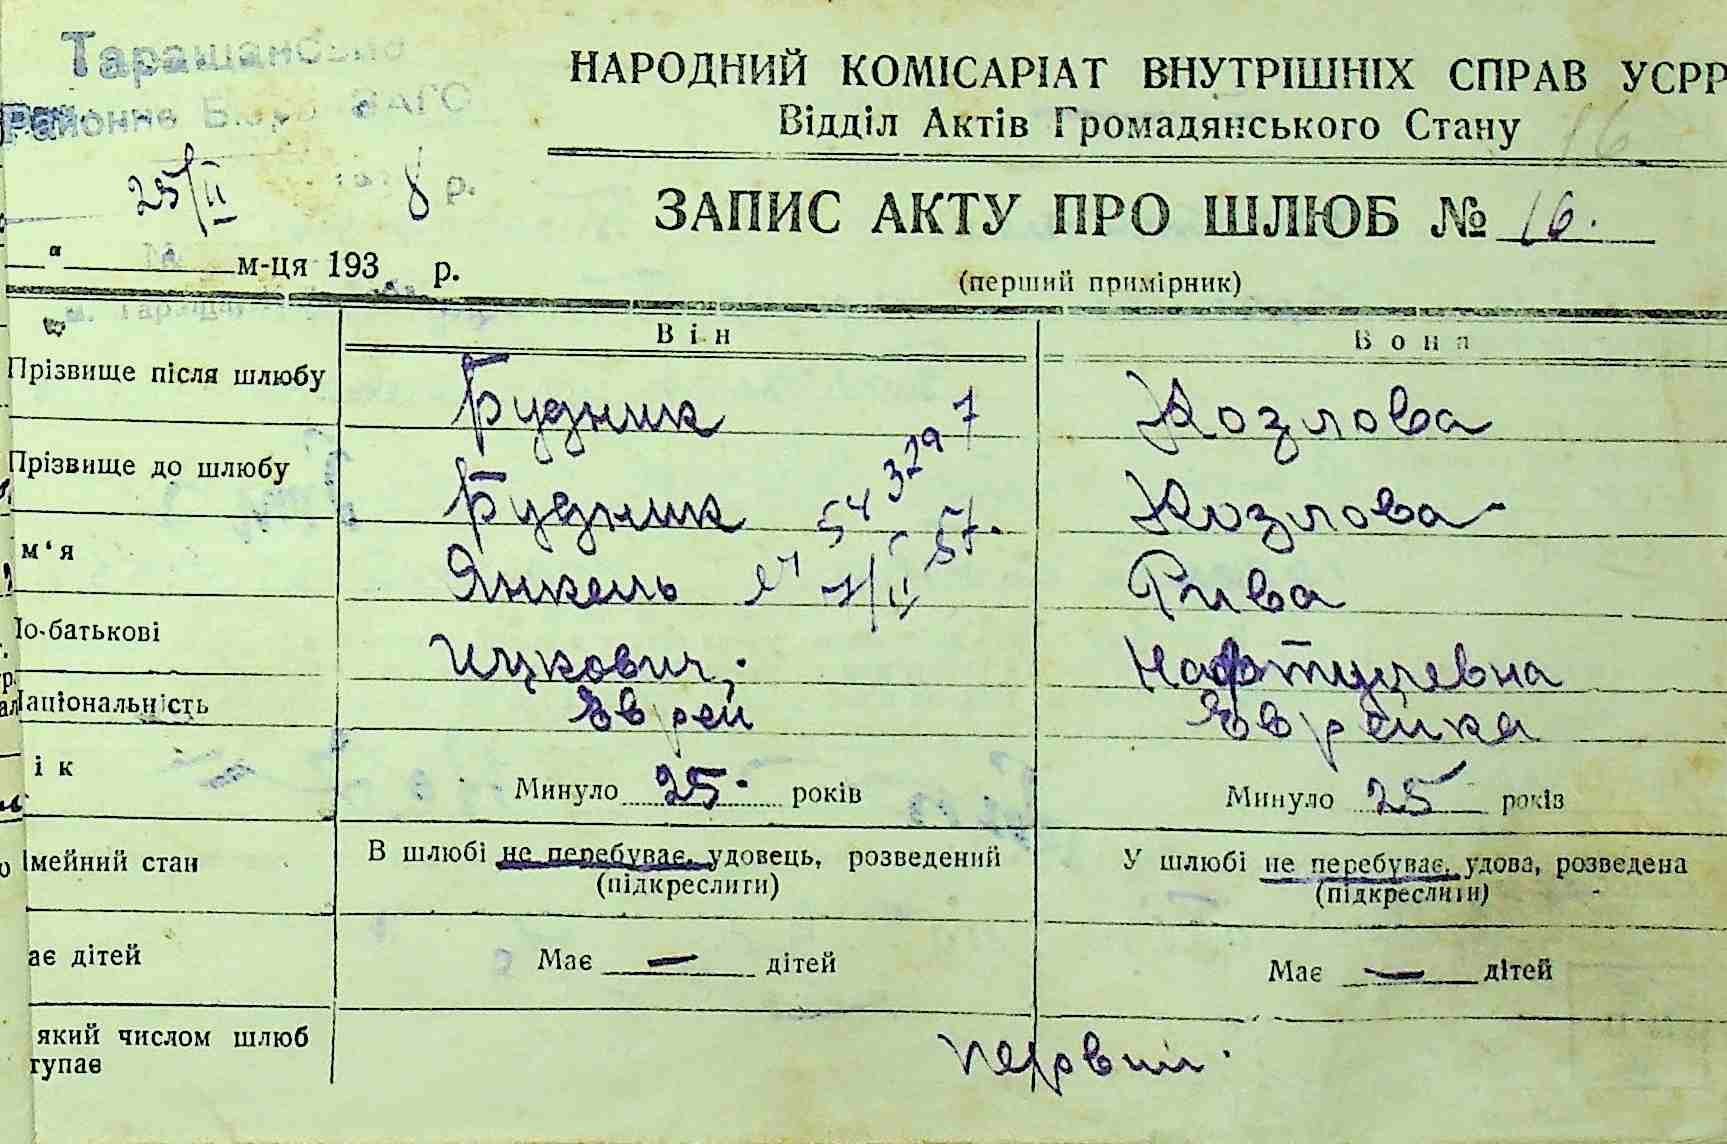 Таращанське
Районне Бюро ЗАГС
25/II 8 р.
НАРОДНИЙ КОМІСАРІАТ ВНУТРІШНІХ СПРАВ УСРР
Відділ Актів Громадянського Стану
16
ЗАПИС АКТУ ПРО ШЛЮБ № 16.
"
м-ця 193 р.
(перший примірник)
м. Тараща
Він Вона
Прізвище після шлюбу Будник Козлова
Прізвище до шлюбу Будник Козлова
м'я Янкель Рива
По-батькові Ицкович Нафтулевна
Національність Еврей Еврейка
ік Минуло 25 років Минуло 25 років
імейний стан В шлюбі не перебуває, удовець, розведений У шлюбі не перебуває, удова, розведена
(підкреслити) (підкреслити)
ає дітей Має — дітей Має — дітей
який числом шлюб
тупає
первий.